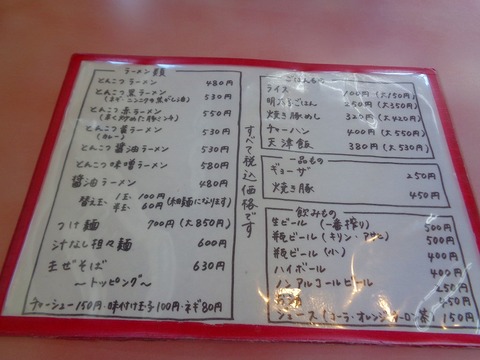 ラーメン類
とんこつラーメン 480円
とんこつ黒ラーメン 530円
とんこつ赤ラーメン 550円
とんこつ黄ラーメン 530円
(カレー)
とんこつ醤油ラーメン 530円
とんこつ味噌ラーメン 580円
醤油ラーメン 480円
替え玉 1玉 100円
半玉 60円 (細麺になります)
つけ麺 700円 (大850円)
汁なし担々麺 600円
まぜそば 630円
～トッピング～
チャーシュー150円・味付け玉子100円・ネギ80円
すべて税込価格です
ごはんもの
ライス 100円 (大150円)
明太ごはん 250円 (大350円)
焼き豚めし 320円 (大420円)
チャーハン 400円 (大550円)
天津飯 380円 (大530円)
一品もの
ギョーザ 250円
焼き豚 450円
飲みもの
生ビール (一番搾り) 500円
瓶ビール (キリン・アサヒ) 500円
瓶ビール (小) 400円
ハイボール 400円
ノンアルコールビール 250円
450円
ジュース (コーラ・オレンジ・ウーロン茶) 150円